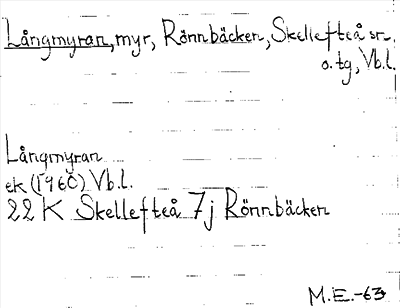 Långmyran, myr, Rönnbäcken, Skellefteå sn.
o. tg, Vb.l.
Långmyran
ek (1960) Vb.l.
22 K Skellefteå 7j Rönnbäcken
M.E.-63